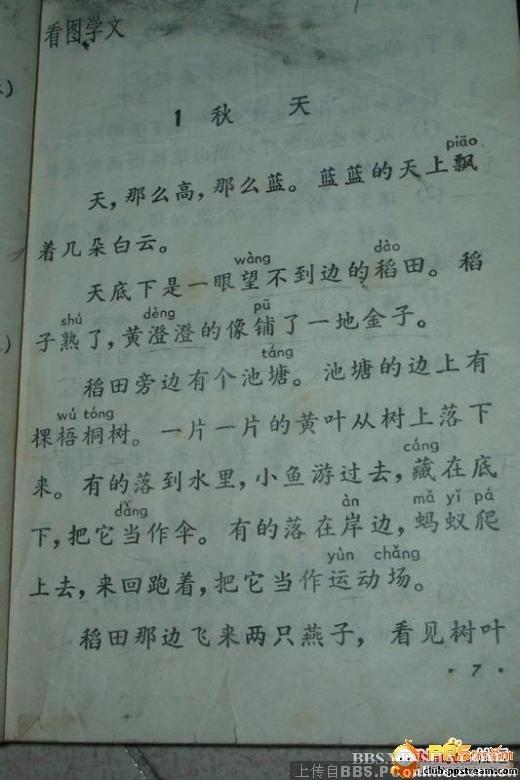 看图学文
1 秋 天
piāo
天,那么高,那么蓝。蓝蓝的天上飘
着几朵白云。
wàng dào
天底下是一眼望不到边的稻田。稻
shú dèng pū
子熟了,黄澄澄的像铺了一地金子。
táng
稻田旁边有个池塘。池塘的边上有
wú tóng
棵梧桐树。一片一片的黄叶从树上落下
cáng
来。有的落到水里,小鱼游过去,藏在底
dàng àn mǎ yǐ pá
下,把它当作伞。有的落在岸边,蚂蚁爬
yùn chǎng
上去,来回跑着,把它当作运动场。
稻田那边飞来两只燕子,看见树叶
·7·
上传自BBS.P
club.ppstream.com